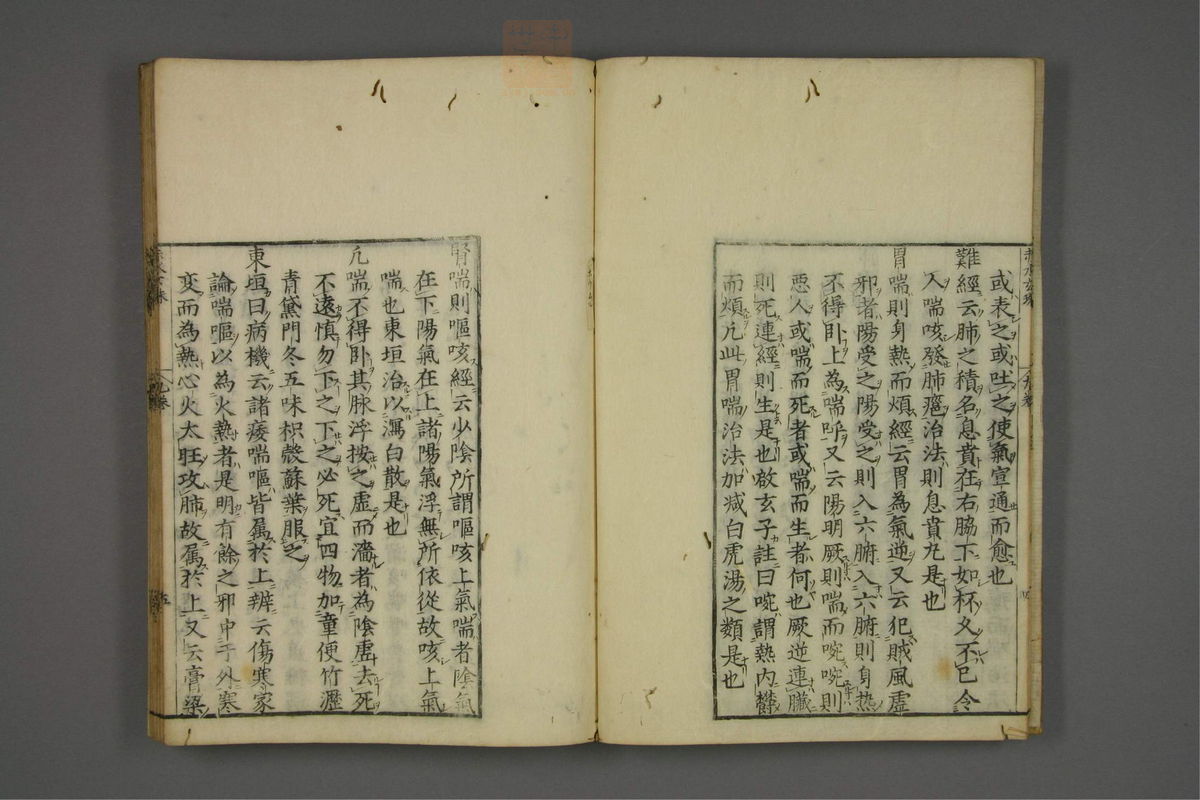 或表之或吐之使氣宣通而愈也
難經云肺之積名息賁在右脇下如杯久不已令
人喘咳發肺癰治法則息賁丸是也
胃喘則身熱而煩經云胃為氣逆又云犯賊風虛
邪者陽受之陽受之則入六腑入六腑則身熱
不得卧上為喘呼又云陽明厥則喘而啘啘則
惡人或喘而死者或喘而生者何也厥逆連臟
則死連經則生是也啟玄子註曰啘謂熱內欝
而煩凢此胃喘治法加减白虎湯之類是也
腎喘則嘔咳經云少陰所謂嘔咳上氣喘者陰氣
在下陽氣在上諸陽氣浮無所依從故咳上氣
喘也東垣治以瀉白散是也
凢喘不得卧其脉浮按之虛而濇者為陰虛去死
不遠慎勿下之下之必死宜四物加童便竹瀝
青黛門冬五味枳殻蘇葉服之
東垣曰病機云諸痿喘嘔皆属於上辨云傷寒家
論喘嘔以為火熱者是明有餘之邪中于外寒
变而為熱心火太旺攻肺故属於上又云膏梁